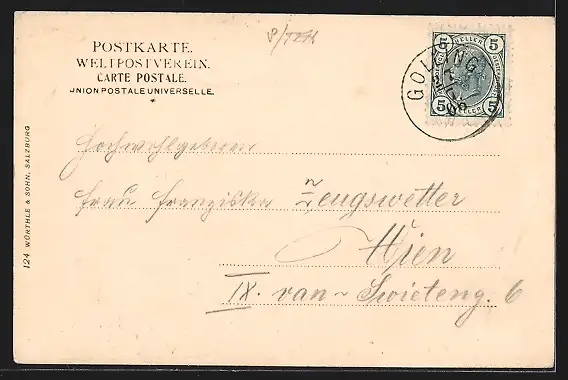 POSTKARTE.
WELTPOSTVEREIN.
CARTE POSTALE.
UNION POSTALE UNIVERSELLE.
5 HELLER 5
5 HELLER 5
GOLLING
Hochwohlgeboren
Frau Franziska Zeugswetter
Wien
IX. van-Swieteng. 6
124 WÜRTHLE & SOHN, SALZBURG